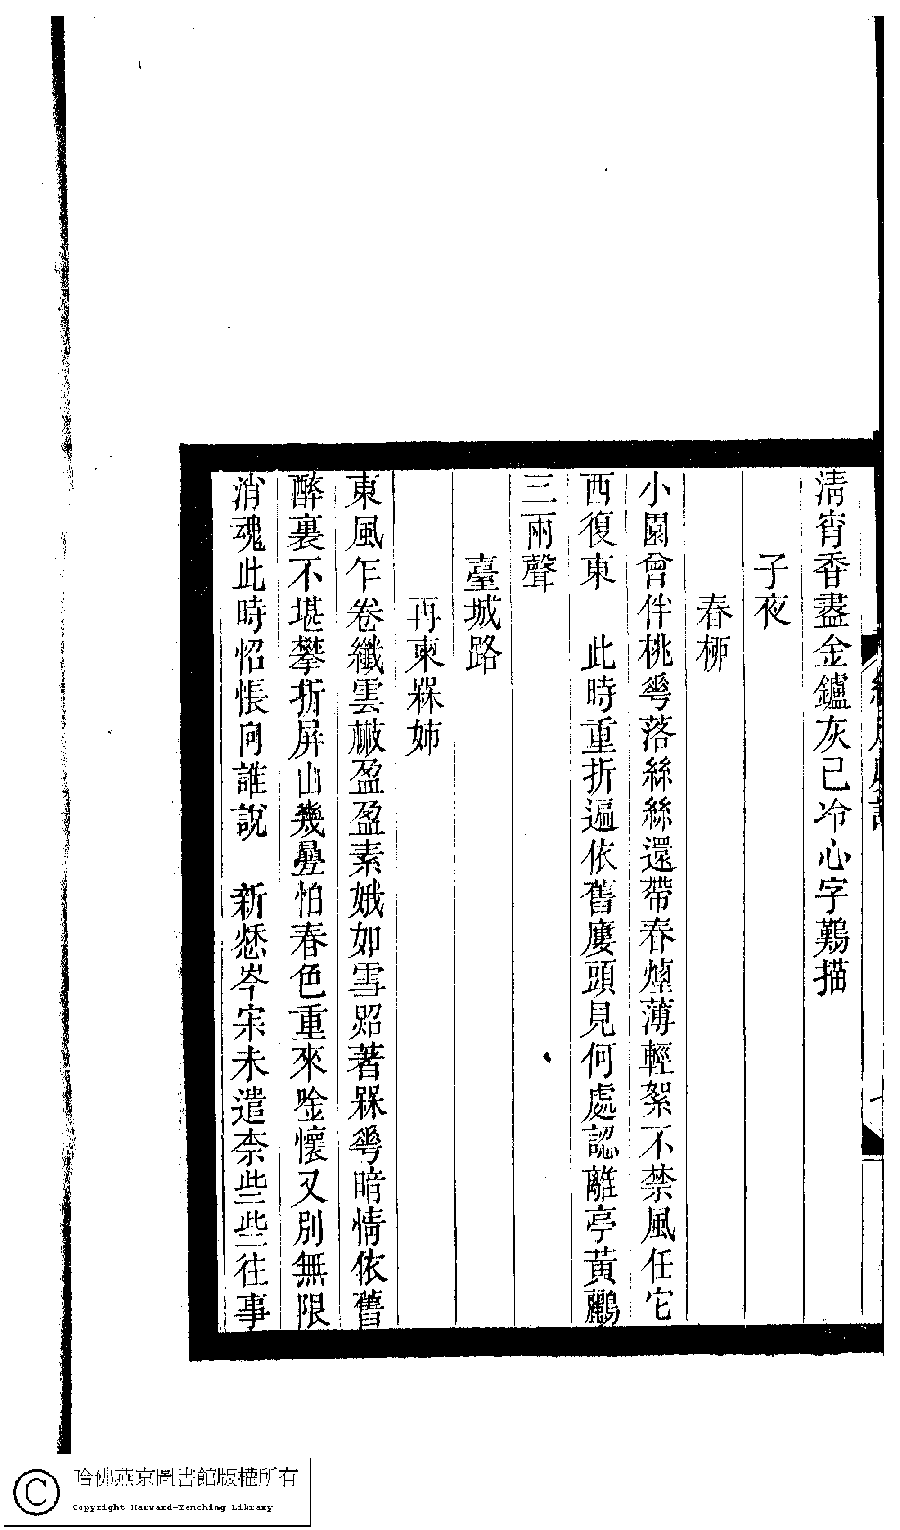 清宵香盡金鑪灰已冷心字鷬描
子夜
春柳
小園曾伴桃雩落絲絲還帶春煙薄輕絮不禁風任它
西復東　此時重折遍依舊廔頭見何處認離亭黃鸝
三兩聲
臺城路
再柬槑姊
東風乍卷纖雲皦盈盈素娥如雪照著槑雩暗情依舊
醉裏不堪攀折屏山幾曡怕春色重來唫懷又別無限
消魂此時怊悵向誰說　新愁岑寂未遣柰些些往事
哈佛燕京圖書館版權所有
Copyright Harvard-Yenching Library